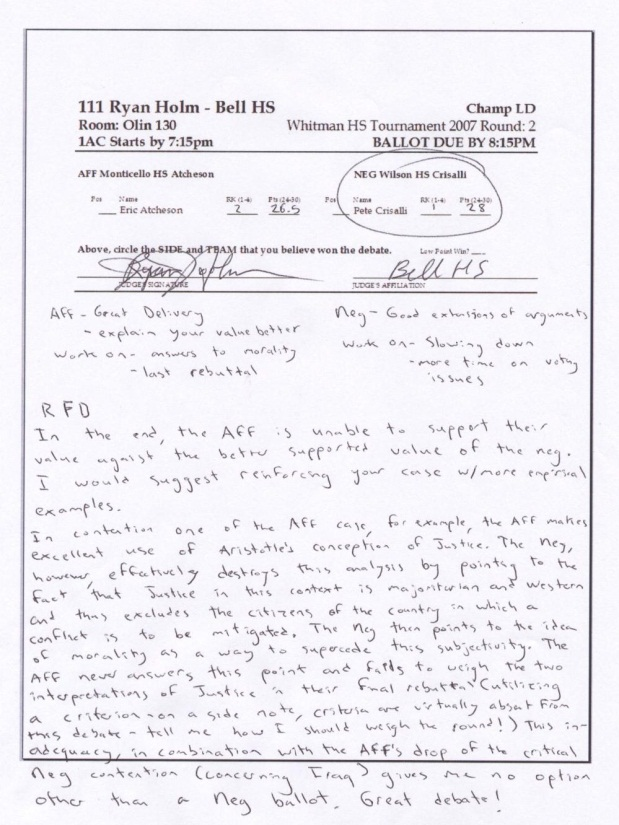 111 Ryan Holm - Bell HS Champ LD
Room: Olin 130 Whitman HS Tournament 2007 Round: 2
1AC Starts by 7:15pm BALLOT DUE BY 8:15PM
AFF Monticello HS Atcheson NEG Wilson HS Crisalli
Pos Name RK (1-4) Pts (24-30) Pos Name RK (1-4) Pts (24-30)
Eric Atcheson 2 26.5 Pete Crisalli 1 28
Above, circle the SIDE and TEAM that you believe won the debate. Low Point Win?
Ryan Holm Bell HS
JUDGE'S SIGNATURE JUDGE'S AFFILIATION
AFF - Great Delivery
- explain your value better
work on - answers to morality
- last rebuttal
Neg - Good extensions of arguments
Work on - Slowing down
- more time on voting
issues
RFD
In the end, the AFF is unable to support their
value against the better supported value of the neg.
I would suggest reinforcing your case w/more empirical
examples.
In contention one of the AFF case, for example, the AFF makes
excellent use of Aristotle's conception of Justice. The Neg,
however, effectively destroys this analysis by pointing to the
fact that Justice in this context is majoritarian and Western
and thus excludes the citizens of the country in which a
conflict is to be mitigated. The Neg then points to the idea
of morality as a way to supercede this subjectivity. The
AFF never answers this point and fails to weigh the two
interpretations of Justice in their final rebuttal (utilizing
a criterion - on a side note, criteria are virtually absent from
this debate - tell me how I should weigh the round!) This in-
adequacy, in combination with the AFF's drop of the critical
Neg contention (concerning Iraq) gives me no option
other than a Neg ballot. Great debate!